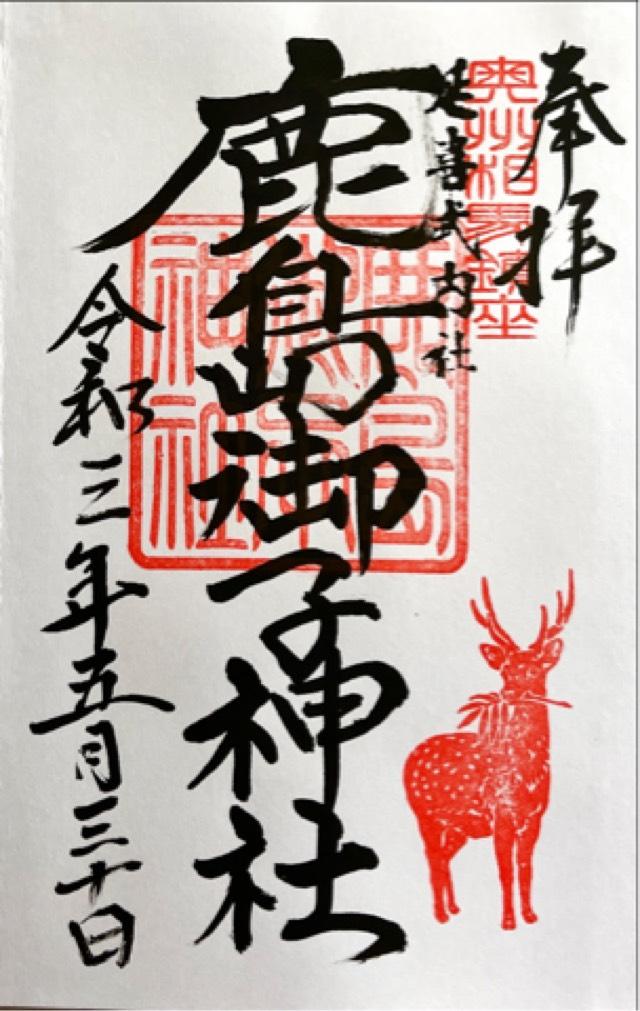 奉拝
奥州相馬鎮座
延喜式内社
鹿島御子神社
令和三年五月三十日